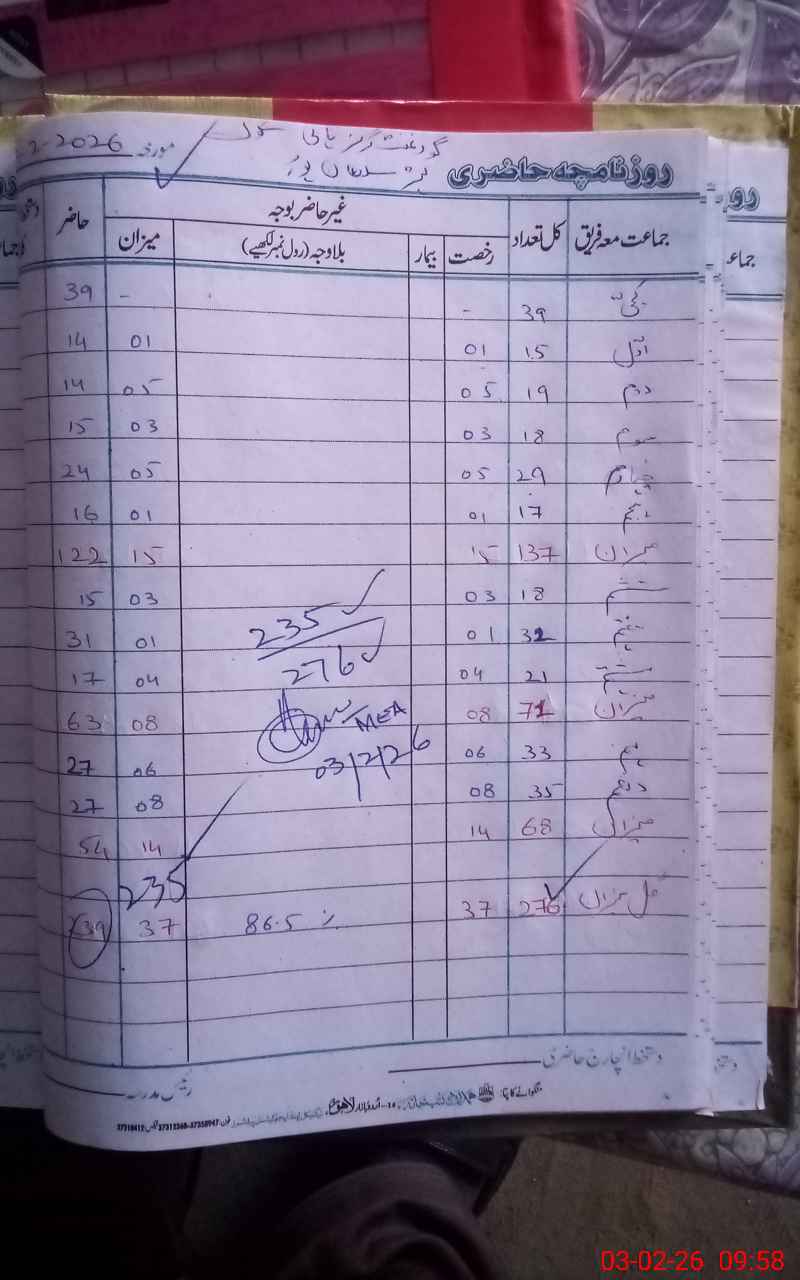 گورنمنٹ گرلز ہائی سکول
روزنامچہ حاضری
مورخہ 2-2026
جماعت معہ فریق کل تعداد غیر حاضر بوجہ حاضر
رخصت بیمار بلاوجہ (رول نمبر لکھیے) میزان
کچی 39 - - 39
اول 15 01 01 14
دوم 19 05 05 14
سوم 18 03 03 15
چہارم 29 05 05 24
پنجم 17 01 01 16
میزان 137 15 15 122
ششم 18 03 03 15
ہفتم 32 01 01 31
ہشتم 21 04 04 17
میزان 71 08 08 63
نہم 33 06 06 27
دہم 35 08 08 27
میزان 68 14 14 54
235
276
MEA
03/2/26
235
کل میزان 276 37 86.5 % 37 239
دستخط انچارج حاضری
رئیس مدرسہ
03-02-26 09:58